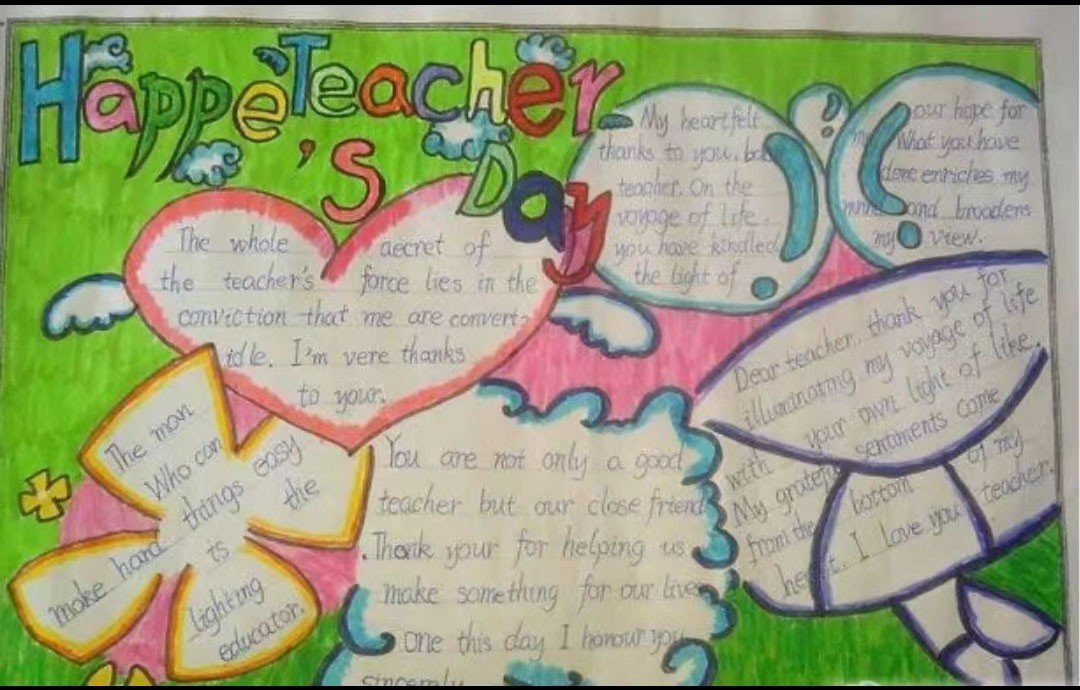 Happe Teacher
's Day
The whole aecret of
the teacher's force lies in the
conviction that me are convert-
idle. I'm vere thanks
to your.
My heartfelt
thanks to you,
teacher. On the
voyage of life.
you have kindled
the light of
our hope for
What you have
done enriches my
and broadens
my view.
Dear teacher, thank you for
illuminating my voyage of life
with your own light of like.
My sentiments come
from the bottom of my
I love you teacher.
The man
Who can
make hard things easy
is the
lighting
educator.
You are not only a good
teacher but our close friend
.Thank your for helping us
make something for our lives
One this day I honour you
sincerely